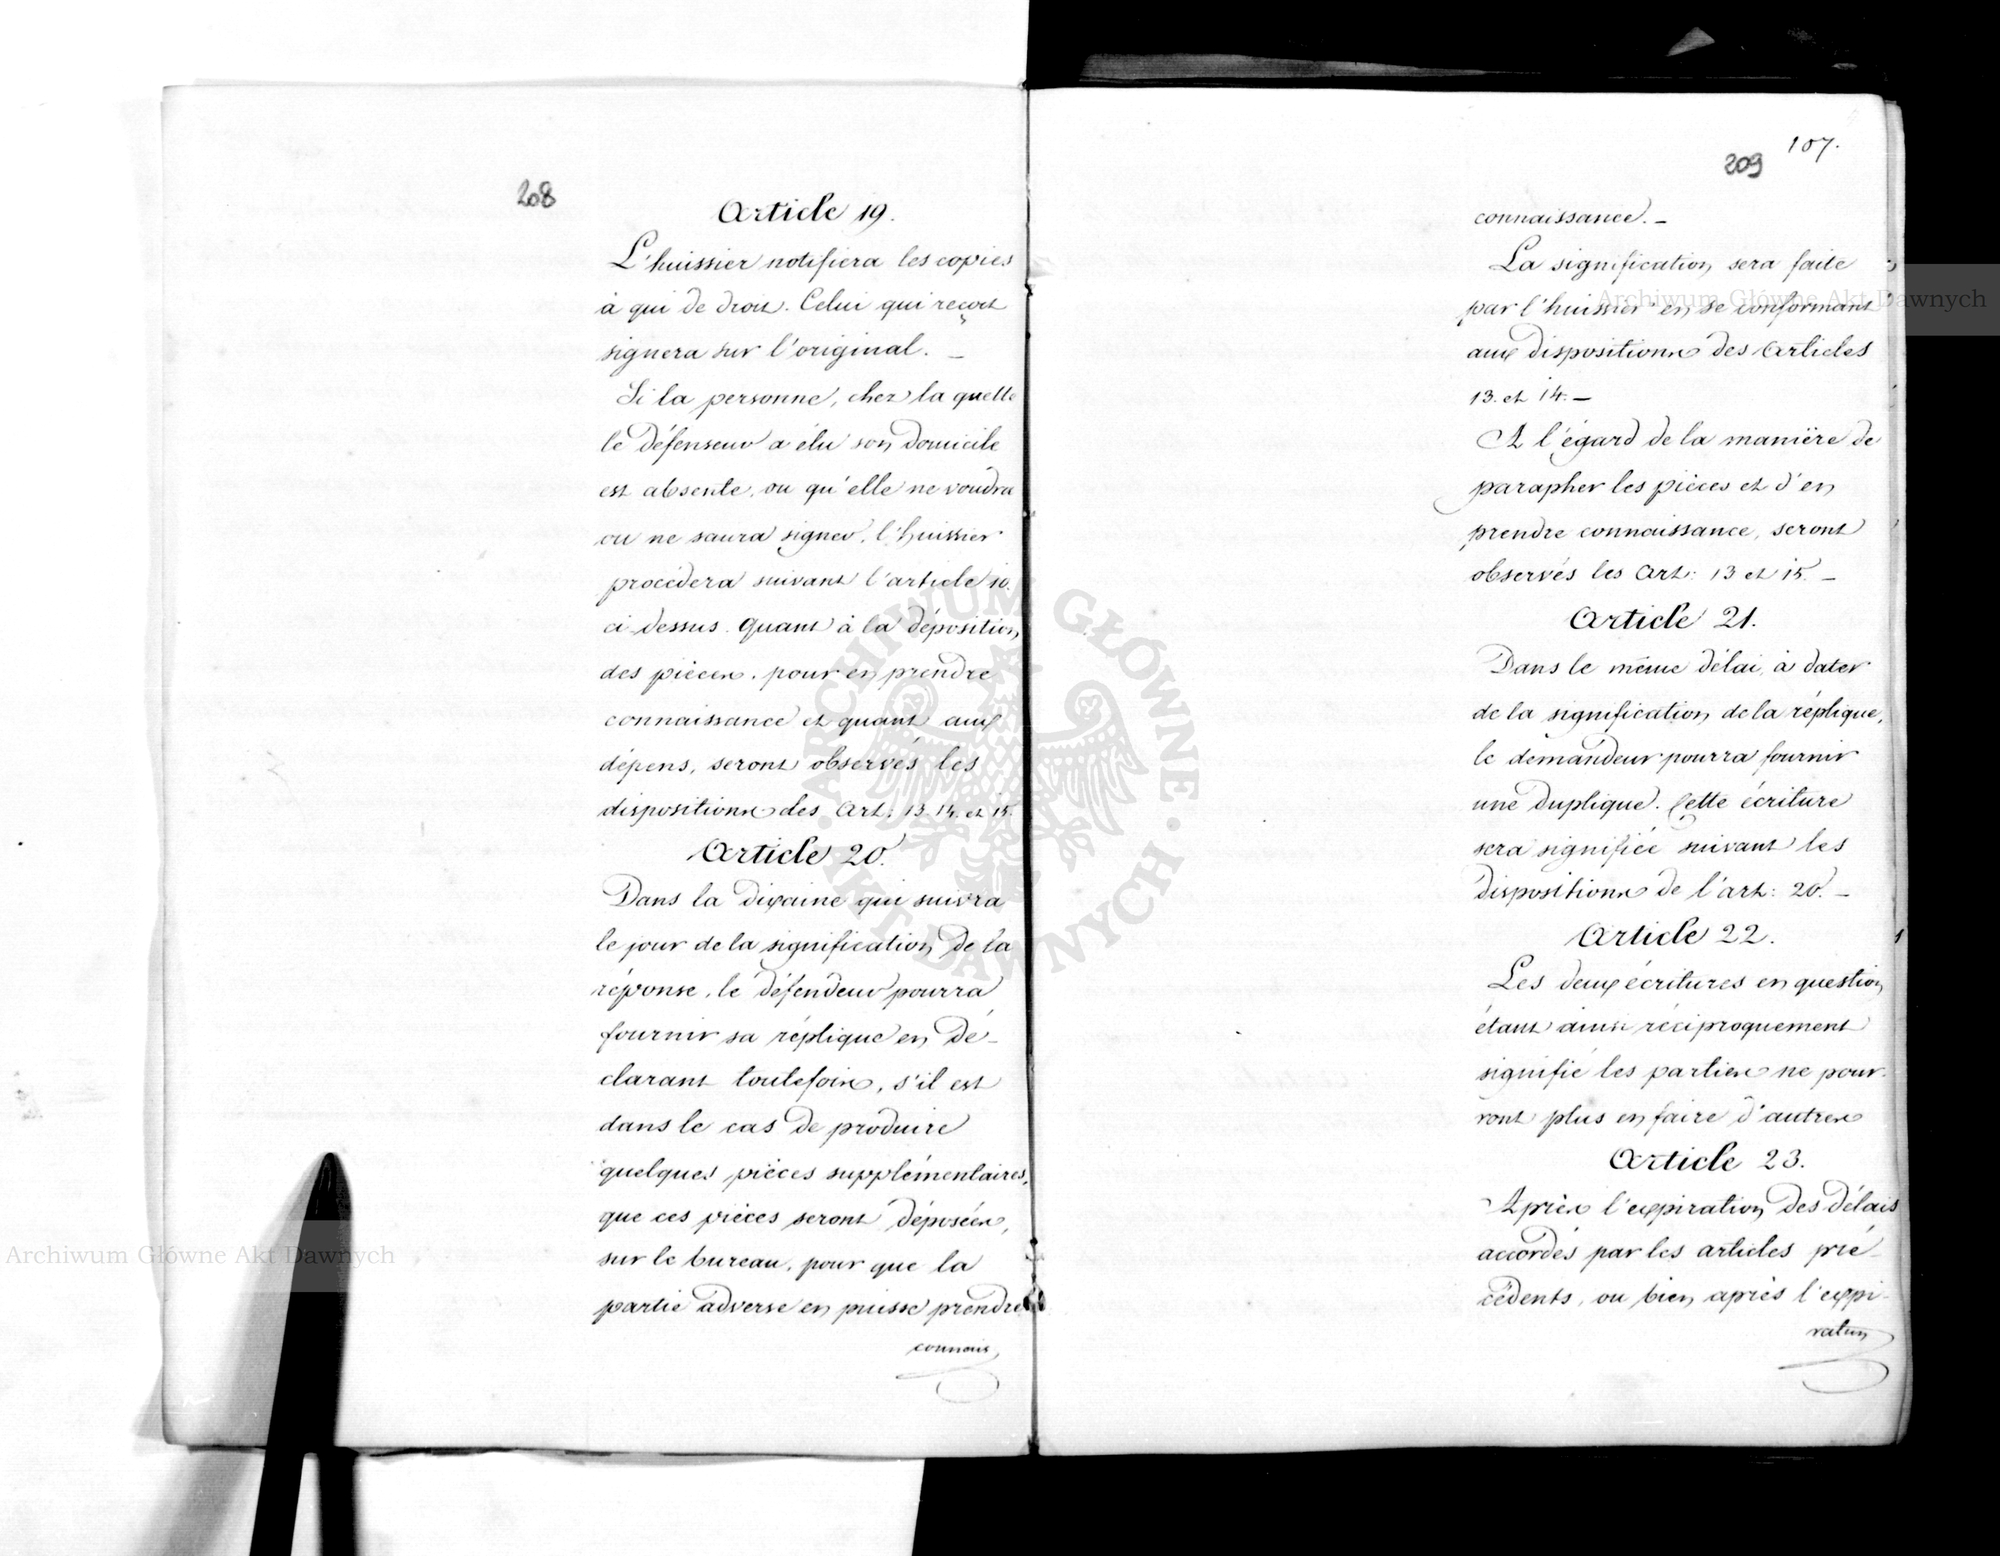 208
Article 19.
L'huissier notifiera les copies
à qui de droit. Celui qui reçoit
signera sur l'original. _
Si la personne, chez la quelle
le défenseur a élu son domicile
est absente, ou qu'elle ne voudra
ou ne saura signer, l'huissier
procédera suivant l'article 10.
ci-dessus. Quant à la déposition
des pièces, pour en prendre
connaissance et quant aux
dépens, seront observés les
dispositions des Art: 13. 14. et 15.
Article 20.
Dans la dixaine qui suivra
le jour de la signification de la
réponse, le défendeur pourra
fournir sa réplique en dé-
clarant toutefois, s'il est
dans le cas de produire
quelques pièces supplémentaires,
que ces pièces seront déposées,
sur le bureau, pour que la
partie adverse en puisse prendre
connais
107.
209
connaissance. _
La signification sera faite
par l'huissier en se conformant
aux dispositions des Articles
13. et 14. _
A l'égard de la manière de
parapher les pièces et d'en
prendre connaissance, seront
observés les Art: 13 et 15. _
Article 21.
Dans le même délai, à dater
de la signification de la réplique,
le demandeur pourra fournir
une duplique. Cette écriture
sera signifiée suivant les
dispositions de l'art: 20. _
Article 22.
Les deux écritures en question
étant ainsi réciproquement
signifié les parties ne pour-
ront plus en faire d'autres
Article 23.
Après l'expiration des délais
accordés par les articles pré-
cédents, ou bien après l'expi-
ration
Archiwum Główne Akt Dawnych
Archiwum Główne Akt Dawnych
ARCHIWUM GŁÓWNE · AKT DAWNYCH ·